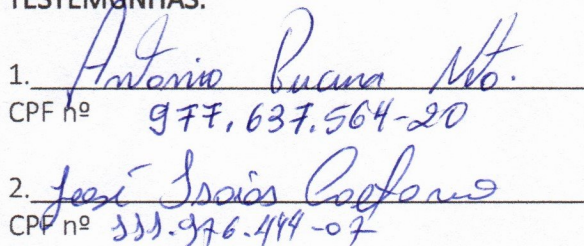 TESTEMUNHAS:
1. Antonio Nto.
CPF nº 977.637.564-20
2. José Isaías Caetano
CPF nº 111.976.444-07